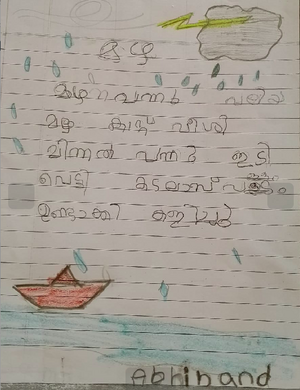 മഴ
മഴ വന്നു വലിയ
മഴ കാറ്റ് വീശി
മിന്നൽ വന്നു ഇടി
വെട്ടി കടലാസ് വള്ളം
ഉണ്ടാക്കി കളിച്ചു
Abhinand